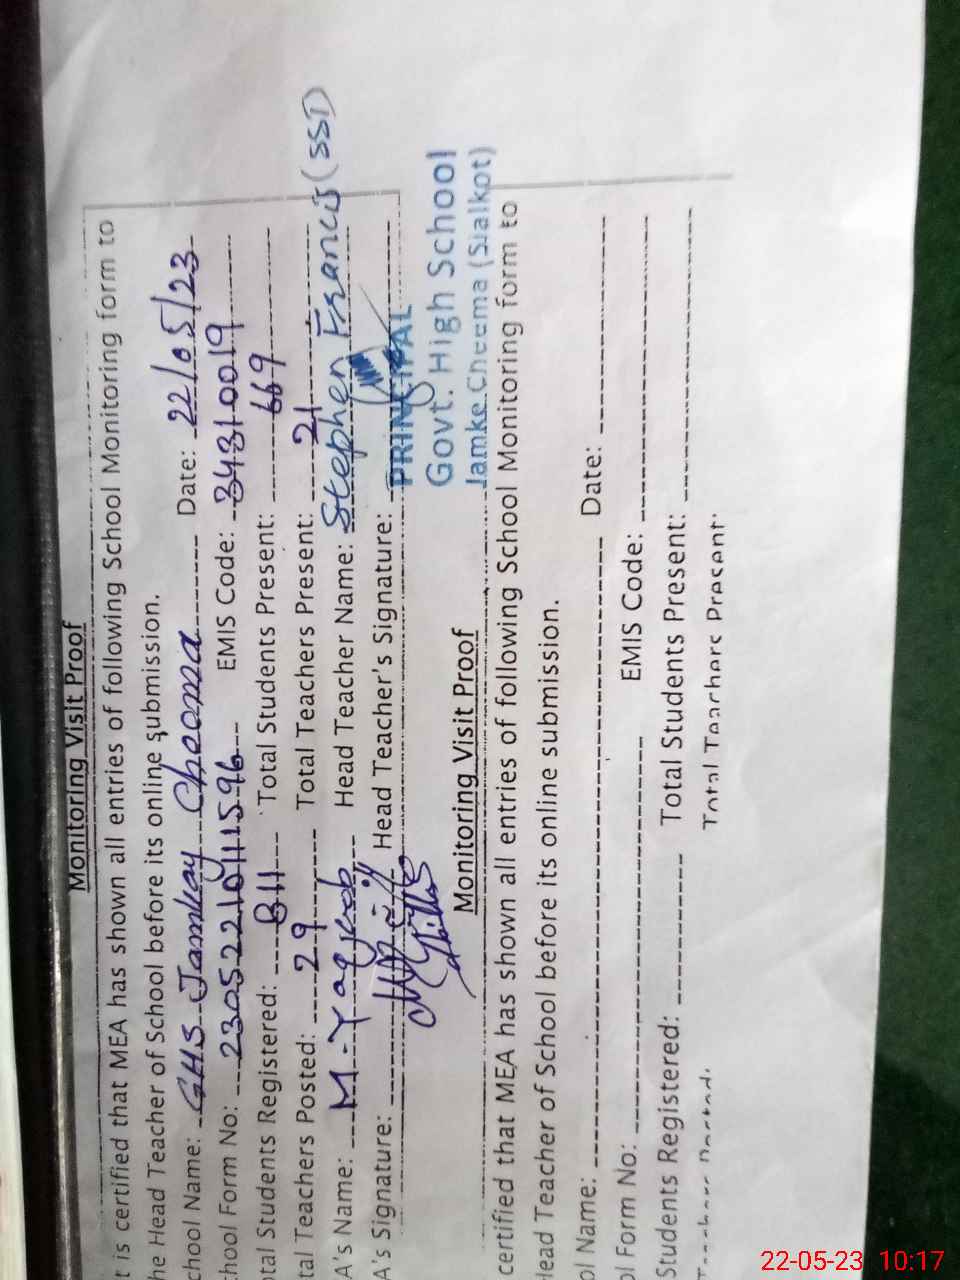 Monitoring Visit Proof
t is certified that MEA has shown all entries of following School Monitoring form to
he Head Teacher of School before its online submission.
chool Name: GHS Jamkay Cheema Date: 22/05/23
hool Form No: 23052210111596 EMIS Code: 34310019
otal Students Registered: 811 Total Students Present: 669
tal Teachers Posted: 29 Total Teachers Present: 21
A's Name: M-Yaqoob Head Teacher Name: Stephen Francis (SST)
A's Signature: Head Teacher's Signature:
PRINCIPAL
Govt. High School
Jamke Cheema (Sialkot)
Monitoring Visit Proof
certified that MEA has shown all entries of following School Monitoring form to
Head Teacher of School before its online submission.
ol Name: Date:
ol Form No: EMIS Code:
Students Registered: Total Students Present:
Total Teachers Present:
22-05-23 10:17